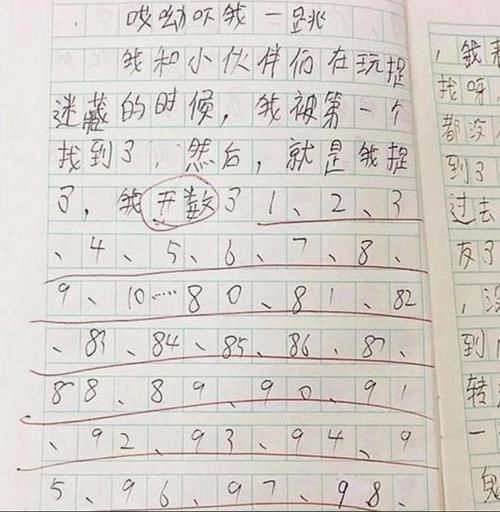 哎呦吓我一跳
我和小伙伴们在玩捉
迷藏的时候，我被第一个
找到了，然后，就是我捉
了，我开数了1、2、3
、4、5、6、7、8、
9、10……80、81、82
、83、84、85、86、87、
88、89、90、91
、92、93、94、9
5、96、97、98、
，我
找呀
都没
到了
过去
友了
，没
到
转
一